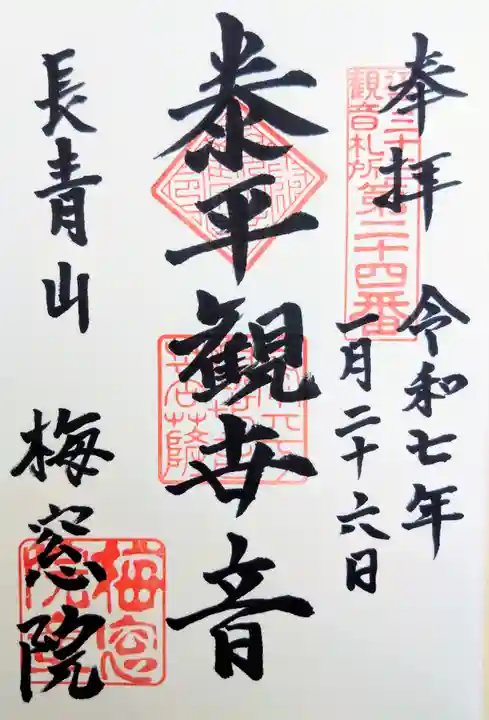 奉拝
令和七年
一月二十六日
三十三
観音札所第二十四番
泰平観世音
長青山
梅窓院
梅窓
院